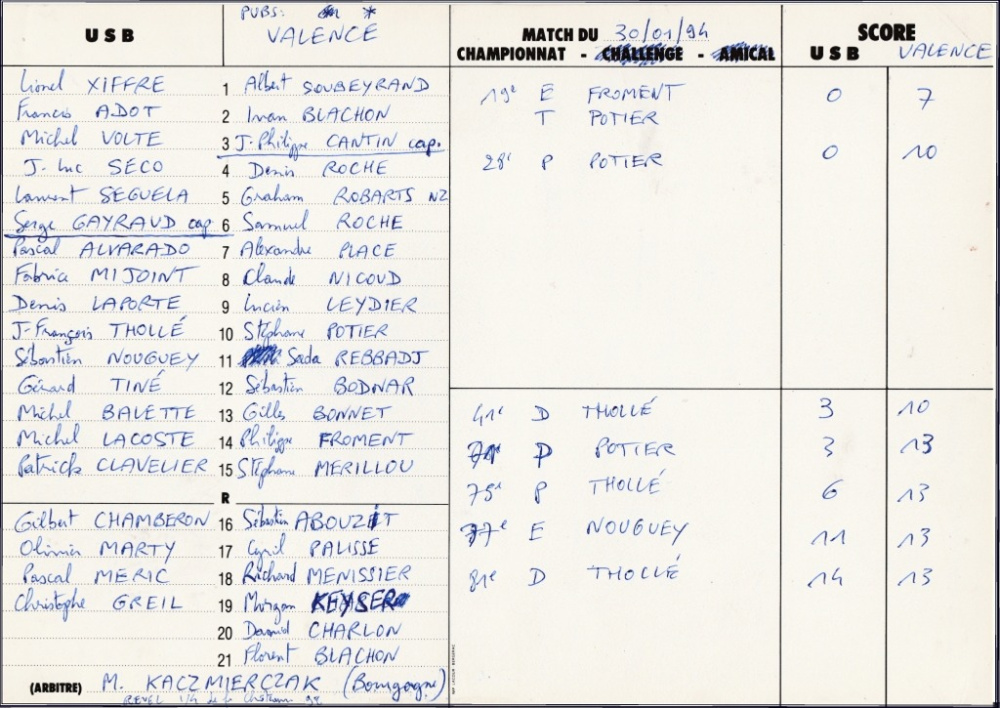 PUBS: *
USB VALENCE
MATCH DU 30/01/94
CHAMPIONNAT - CHALLENGE - AMICAL
SCORE
USB VALENCE
Lionel XIFFRE 1 Albert SOUBEYRAND
Francis ADOT 2 Ivan BLACHON
Michel VOLTE 3 J-Philippe CANTIN cap.
J-Luc SECO 4 Denis ROCHE
Laurent SEGUELA 5 Graham ROBARTS NZ
Serge GAYRAUD cap 6 Samuel ROCHE
Pascal ALVARADO 7 Alexandre PLACE
Fabrice MIJOINT 8 Claude NICOUD
Denis LAPORTE 9 Lucien LEYDIER
J-François THOLLÉ 10 Stéphane POTIER
Sébastien NOUGUEY 11 Sada REBBADJ
Gérard TINÉ 12 Sébastien BODNAR
Michel BALETTE 13 Gilles BONNET
Michel LACOSTE 14 Philippe FROMENT
Patrick CLAVELIER 15 Stéphane MERILLOU
R
Gilbert CHAMBERON 16 Sébastien ABOUZIT
Olivier MARTY 17 Cyril PALISSE
Pascal MERIC 18 Richard MENISSIER
Christophe GREIL 19 Morgan KEYSER
20 David CHARLON
21 Florent BLACHON
(ARBITRE) M. KACZMIERCZAK (Bourgogne)
REVEL 1/4 de
19e E FROMENT 0 7
T POTIER
28e P POTIER 0 10
41e D THOLLÉ 3 10
71e P POTIER 3 13
75e P THOLLÉ 6 13
77e E NOUGUEY 11 13
81e D THOLLÉ 14 13